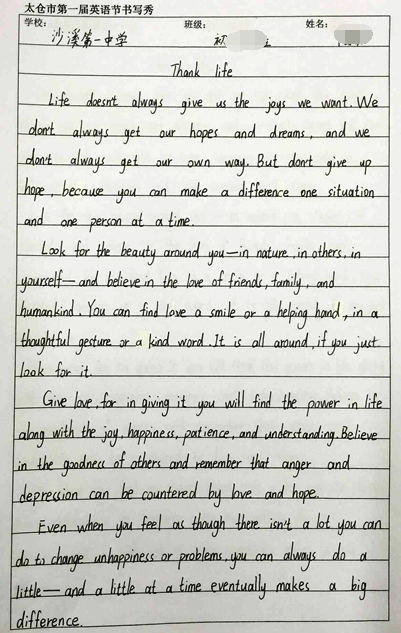 太仓市第一届英语节书写秀
学校: 沙溪第一中学 班级: 初 姓名:
Thank life
Life doesn't always give us the joys we want. We
don't always get our hopes and dreams, and we
don't always get our own way. But don't give up
hope, because you can make a difference one situation
and one person at a time.
Look for the beauty around you—in nature, in others, in
yourself—and believe in the love of friends, family, and
humankind. You can find love a smile or a helping hand, in a
thoughtful gesture or a kind word. It is all around, if you just
look for it.
Give love, for in giving it you will find the power in life
along with the joy, happiness, patience, and understanding. Believe
in the goodness of others and remember that anger and
depression can be countered by love and hope.
Even when you feel as though there isn't a lot you can
do to change unhappiness or problems, you can always do a
little—and a little at a time eventually makes a big
difference.